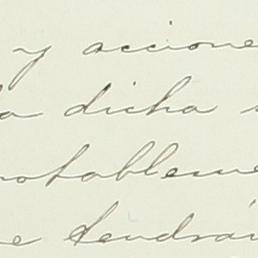 y accione
a dicha
notableme
e tendrá